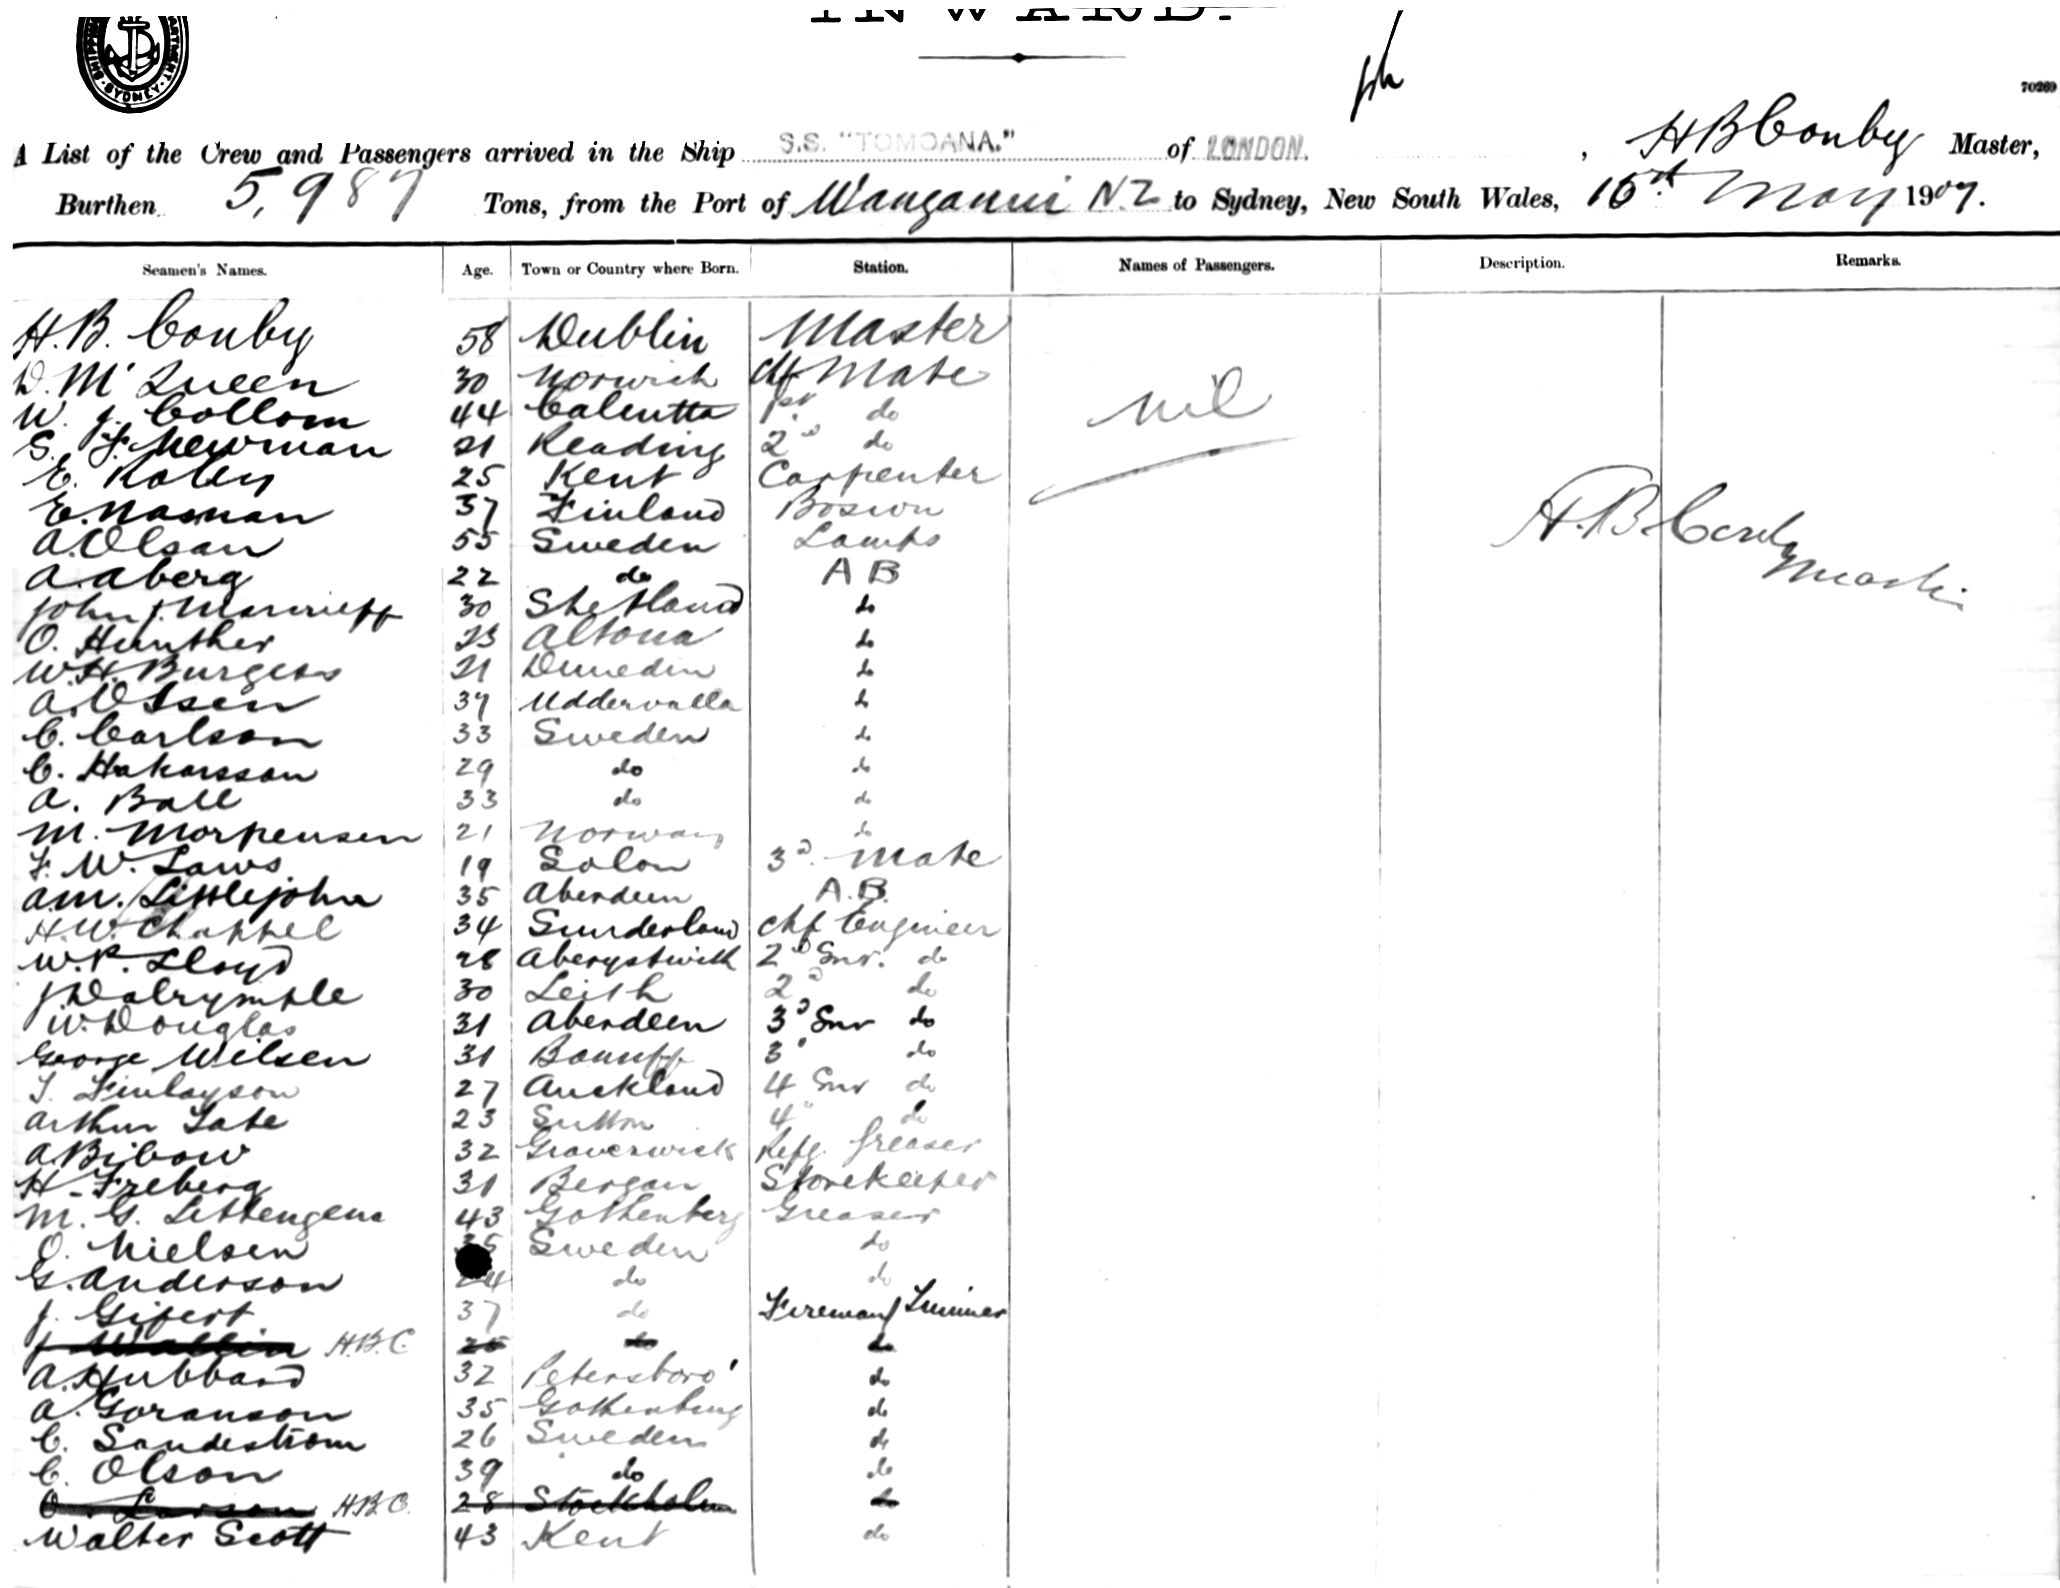 INWARD.
SYDNEY
70269
A List of the Crew and Passengers arrived in the Ship S.S. "TOMOANA." of LONDON. , H B Conby Master,
Burthen 5,987 Tons, from the Port of Wanganui N.Z to Sydney, New South Wales, May 1907.
Seamen's Names. Age. Town or Country where Born. Station. Names of Passengers. Description. Remarks.
H. B. Conby 58 Dublin Master
D. McQueen 30 Norwich Chf Mate
W. J. Collom 44 Calcutta 1st do
nil
S. F. Newman 21 Reading 2nd do
E. Roley 25 Kent Carpenter
E. Nasman 37 Finland Boswn
A. Olsan 55 Sweden Lamps
H. B. Conby
Master
A. Aberg 22 do A B
John J. 30 Shetland do
O. Hunther 23 Altona do
W. H. Burgess 21 Dunedin do
A. Olsen 37 Uddervalla do
C. Carlson 33 Sweden do
C. Hakansson 29 do do
A. Ball 33 do do
M. Morpensen 21 Norway do
F. W. Laws 19 Solon 3d. Mate
A.M. Littlejohn 35 Aberdeen A.B.
H. W. Chappel 34 Sunderland Chf Engineer
W. P. Lloyd 28 Aberystwith 2nd Snr. do
J Dalrymple 30 Leith 2d do
W. Douglas 31 Aberdeen 3d Snr do
George Wilsen 31 Bannff 3d do
T. Finlayson 27 Auckland 4 Snr do
Arthur Tate 23 Sutton 4" do
A Bibow 32 Graverwick Refg. Greaser
H. Freberg 31 Bergan Storekeeper
M. G. Lettengens 43 Gothenberg Greaser
O. Nielsen 35 Sweden do
G. Anderson 24 do do
J. Gifert 37 do Fireman & Trimmer
J Wallin H.B.C. 25 do do
A. Hubbard 32 Petersboro' do
A. Goranson 35 Gothenburg do
C. Sandestrom 26 Sweden do
C. Olson 39 do do
O. Larson H.B.C. 28 Stockholm do
Walter Scott 43 Kent do